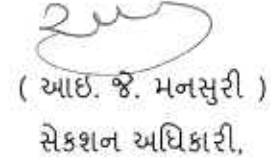 ( આઇ. જે. મનસુરી )
સેકશન અધિકારી,